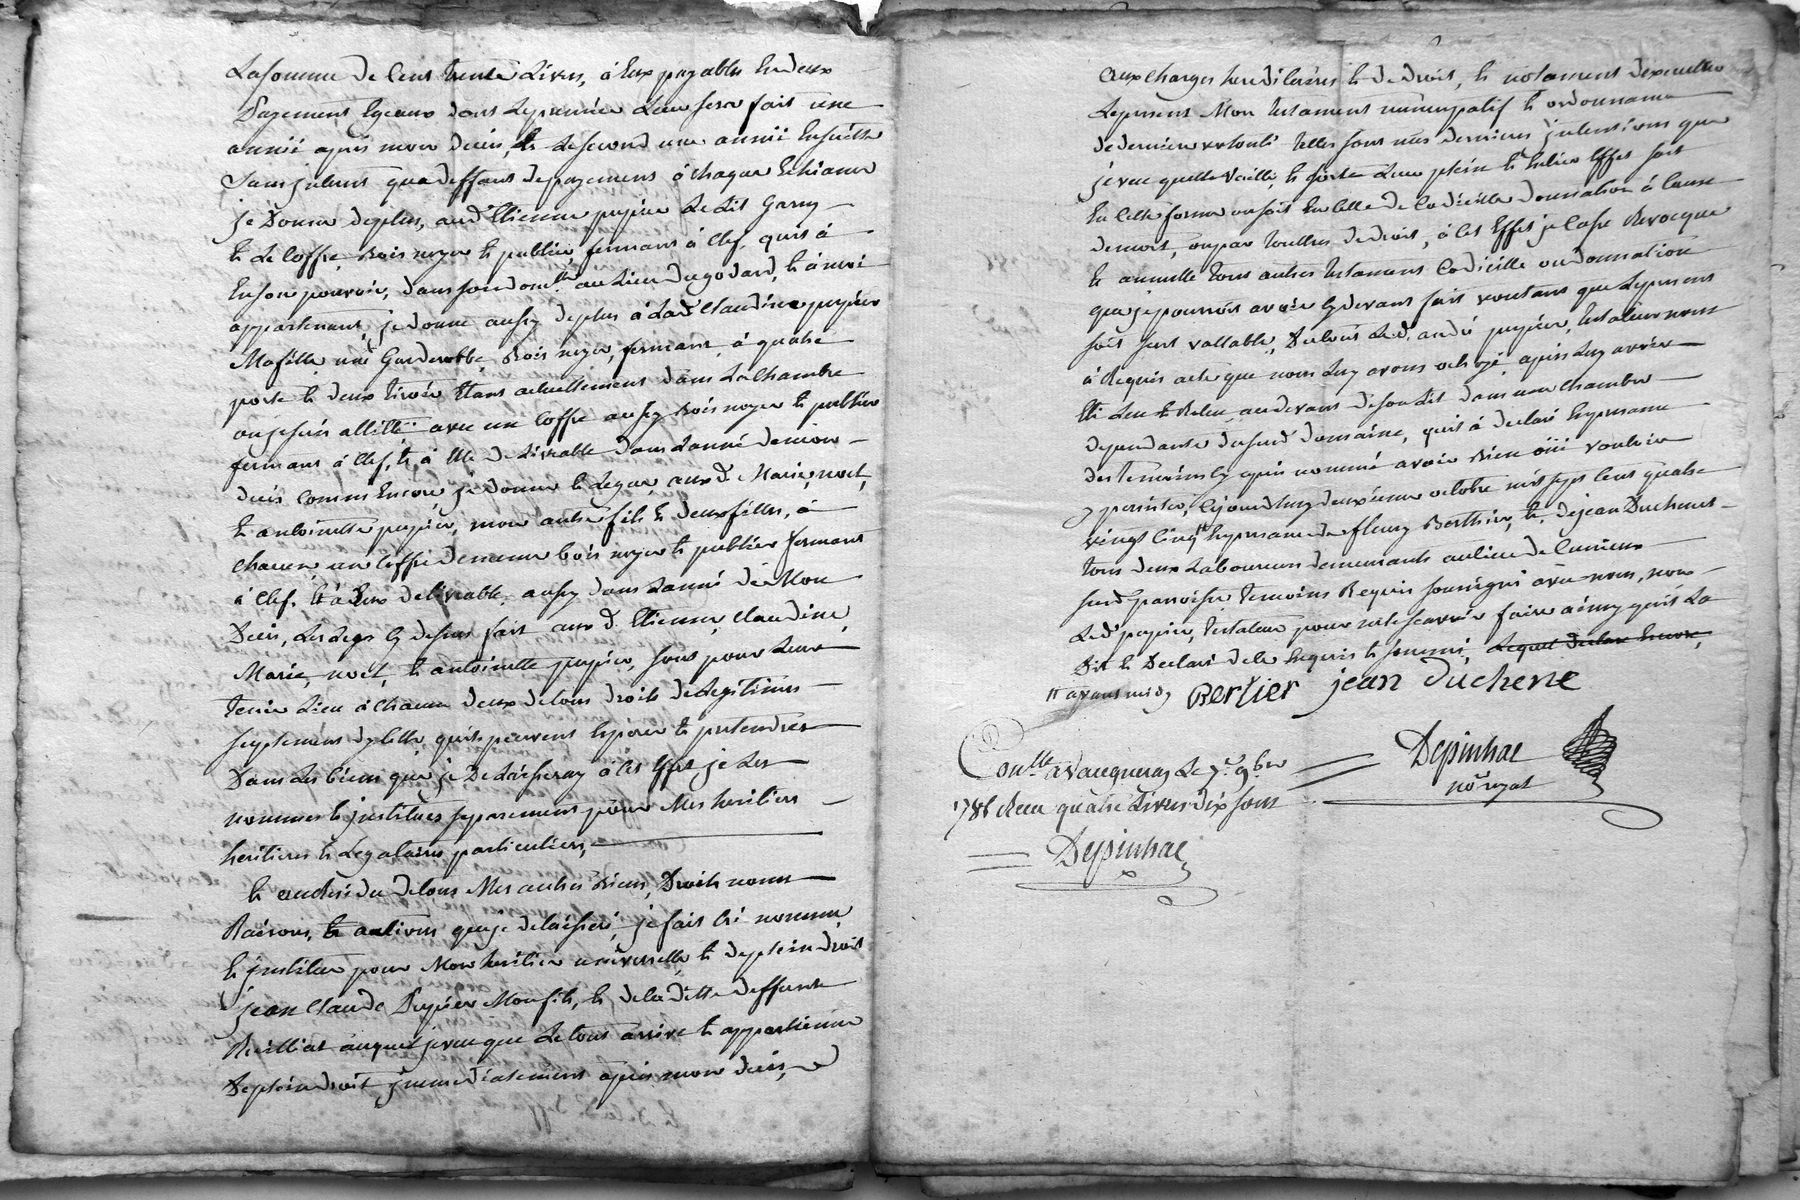 La somme de Cent trente Livres, à Eux payables En deux
Payements Egeaux dont Le premier Leur sera fait une
année après mon decès, Et Le second une année Ensuitte
Sans interest qua deffaut de payement à chaque Echéance
je Donne deplus, aud. Etienne pupier Le Lit Garny
Et Le Coffre Bois noyer Et publier, fermant à Clef, quil à
En son pouvoir, dans son domlle au Lieu Dugodard, Et à moi
appartenant, je donne aussy deplus à Lad. Claudine pupier
Ma fille une Garderobbe, Bois noyer, fermant, à quatre
porte Et deux tiroir Etant actuellement dans La Chambre
ou je suis allitté avec un Coffre aussy Bois noyer Et publier
fermant à Clef, Et à Elle delivrable Dans Lannée de mon
decès Comme Encore, je donne Et Legue, auxd. Marie, noel,
Et antoinette pupier, mon autre fils Et deux filles, à
chacun un Coffre de même bois noyer Et publier fermant
à Clef, Et à Eux delivrable aussy dans Lannée de Mon
Decès, Les Legs Cy dessus fait aux d. Etienne, Claudine,
Marie, noel, Et antoinette pupier, sont pour Leur
tenir Lieu à chacun deux de tous droits de Legitimes
supplement dycelle, quils peuvent Esperer Et pretendres
Dans Les biens que je Delaisseray à Cet Effet je Les
nommes Et jnstitues separement pour Mes heritiers
heritieres Et Legataires particuliers,
Et au Residu de tous Mes autres Biens, Droits noms
Raisons, Et actions que je delaisseré, je fait Cré nomme
Et jnstitue pour Mon heritier universelle Et de plein droit
jean Claude Pupier Mon fils, Et de la ditte deffunte
auquel je veu que Le tout arrive Et appartienne
De plein droit jmmediatement après mon decès,
aux Charges hereditaires Et de droit, Et notament dexecutter
Le present Mon testament nuncupatif Et ordonnance
de derniere volonté telles sont mes dernieres jntentions que
je veu quelle Vaille, Et sorte Leur plein Et Entier Effet soit
En Cette forme ou soit En Celle de Codicille donnation à Cause
de mort, ou par touttes de droit, à Cet Effet je Casse Revocque
Et annulle tous autres testament Codicille ou donnation
que je pourrois avoir Cy devant fait voulant que Le present
soit seul vallable, De tout Led. andré pupier, testateur nous
à Requis acte que nous Luy avons octroyé, après Luy avoir
Eté Leu Et Releu au devant de son Lit dans une Chambre
dependante dusud. domaine, quil à declaré En presence
des temoins Cy après nommé avoir Bien oüi vouloir
y persister, Cejourdhuy deuxieme octobre mil sept Cent quatre
vingt Cinq En presence de fleury Berthier, Et, de jean Duchene
tous deux Laboureurs demeurants au lieu de
sud. parroisse temoins Requis soussigné avec nous, non
Led. pupier, testateur pour ne le scavoir faire ainsy quil La
Dit Et Declaré de ce Enquis Et sommé, Lequel declare Encore,
Berlier jean Duchene
Conlle à Vaugneray Le 7e 9bre
Depinhac
no royal
1785 Recu quatre Livres dix sous
Depinhac